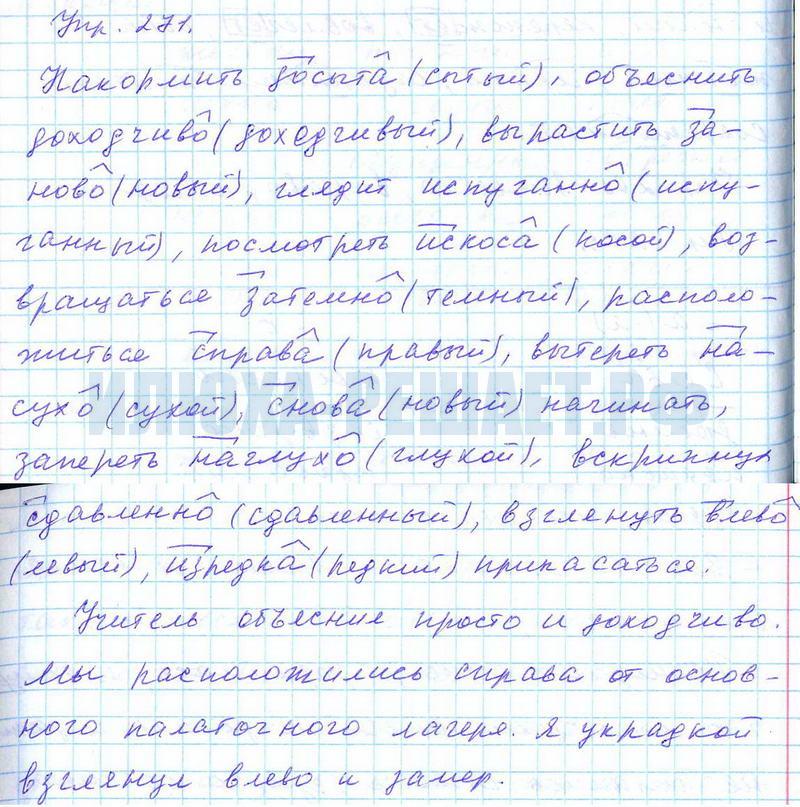 Упр. 271.
Накормить досыта (сытый), объяснить
доходчиво (доходчивый), вырастить за-
ново (новый), глядит испуганно (испу-
ганный), посмотреть искоса (косой), воз-
вращаться затемно (темный), располо-
житься справа (правый), вытереть на-
сухо (сухой), снова (новый) начинать,
запереть наглухо (глухой), вскрикнул
ИЛЮХА-РЕШАЕТ.РФ
сдавленно (сдавленный), взглянуть влево
(левый), изредка (редкий) прикасаться.
Учитель объяснил просто и доходчиво.
Мы расположились справа от основ-
ного палаточного лагеря. Я украдкой
взглянул влево и замер.